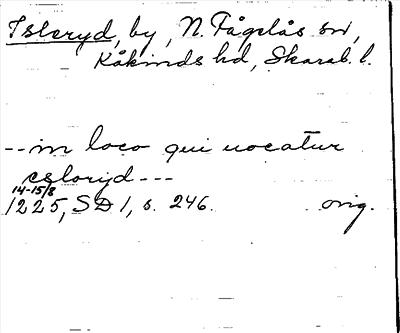 Isleryd, by, N. Fågelås sn,
Kåkinds hd, Skarab. l.
-- in loco qui uocatur
esloryd ---
14-15/8
1225, SD 1, s. 246. orig.